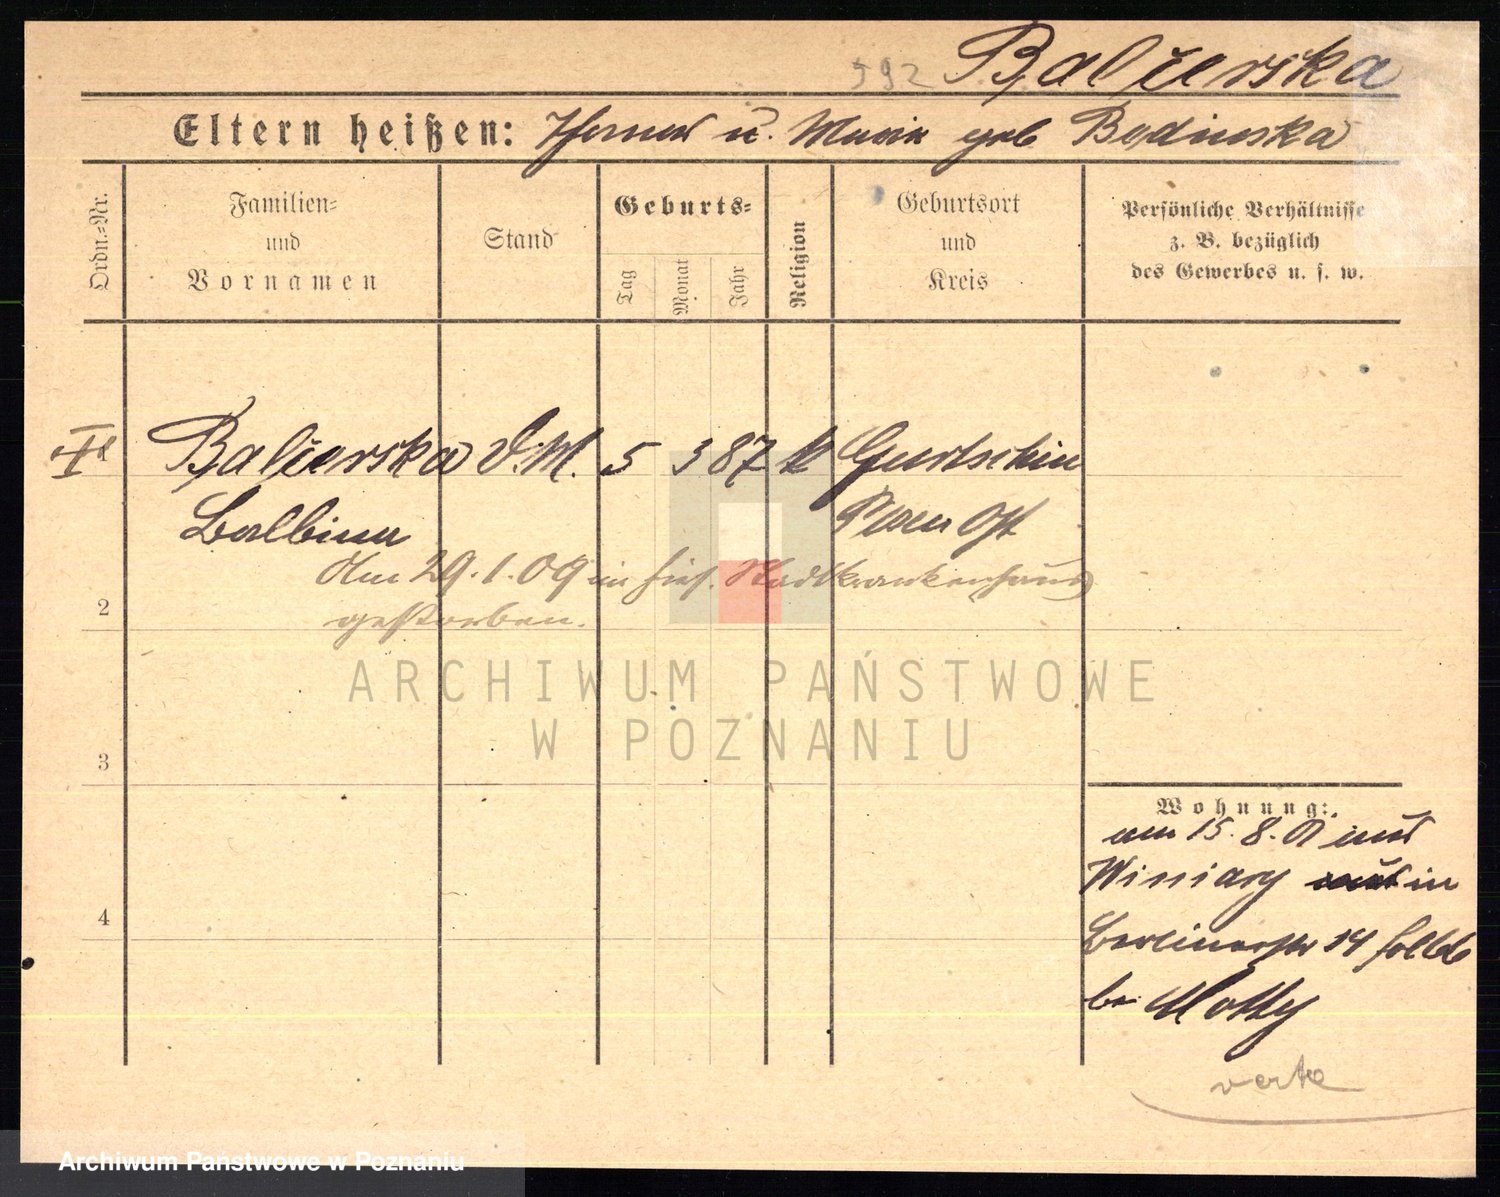 592 Balcerska
Eltern heißen: Thomas u. Maria geb Bedinska
Ordn.=Nr.
Familien=
und
Vornamen
Stand
Geburts=
Tag
Monat
Jahr
Religion
Geburtsort
und
Kreis
Persönliche Verhältnisse
z. B. bezüglich
des Gewerbes u. s. w.
Balcerska D.M. 5 3 87 k Gurtschin
Balbina Posen Ost
Am 29.1.09 im hies. Stadtkrankenhaus
gestorben.
2
3
4
Wohnung:
am 15. 8. aus
Winiary in
Berlinerstr 14
bei Motty
verte
ARCHIWUM PAŃSTWOWE
W POZNANIU
Archiwum Państwowe w Poznaniu